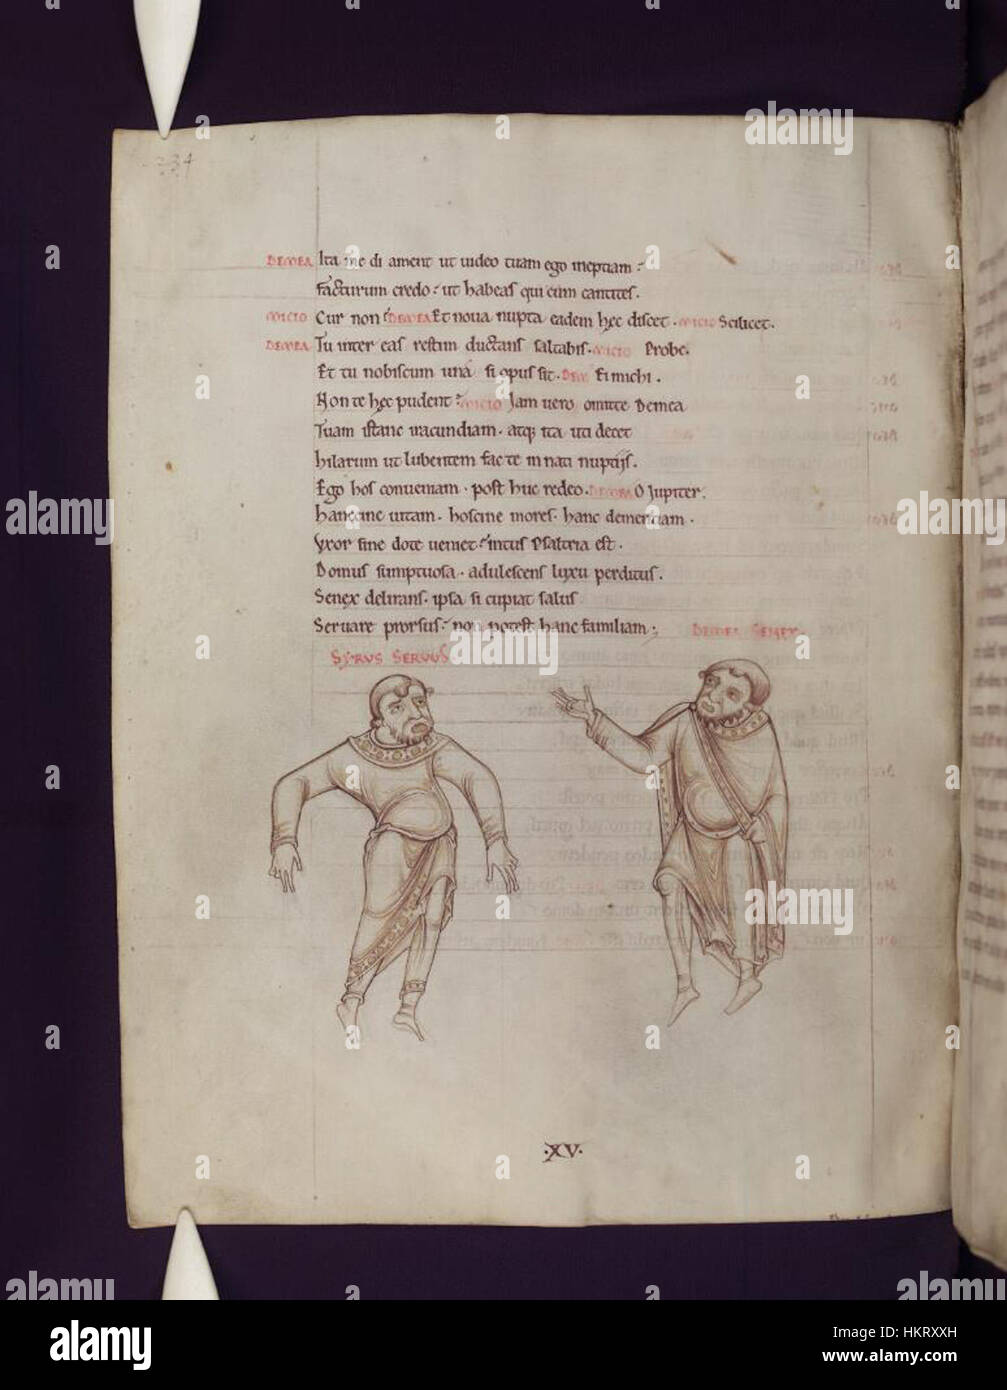 234
DEMEA Ita me di ament ut uideo tuam ego ineptiam:
facturum credo: ut habeas qui cum cantites.
MICIO Cur non: DEMEA Et noua nupta eadem hec discet. MICIO Scilicet.
DEMEA Tu inter eas restim ductans saltabis. MICIO Probe.
Et tu nobiscum una si opus sit. DEM Ei michi.
Non te hec pudent: MICIO Jam uero omitte Demea
Tuam istanc iracundiam. atq; ita uti decet
hilarum ut lubentem fac te in nati nuptijs.
Ego hos conueniam. post huc redeo. DEMEA O Jupiter.
hanccine uitam. hoscine mores. hanc dementiam.
Vxor sine dote ueniet: intus Psaltria est.
Domus sumptuosa. adulescens luxu perditus.
Senex delirans. ipsa si cupiat salus
Seruare prorsus: non potest hanc familiam:
DEMEA SENEX
SYRUS SERVUS
.XV.
a alamy
alamy
Image ID: HKRXXH
www.alamy.com